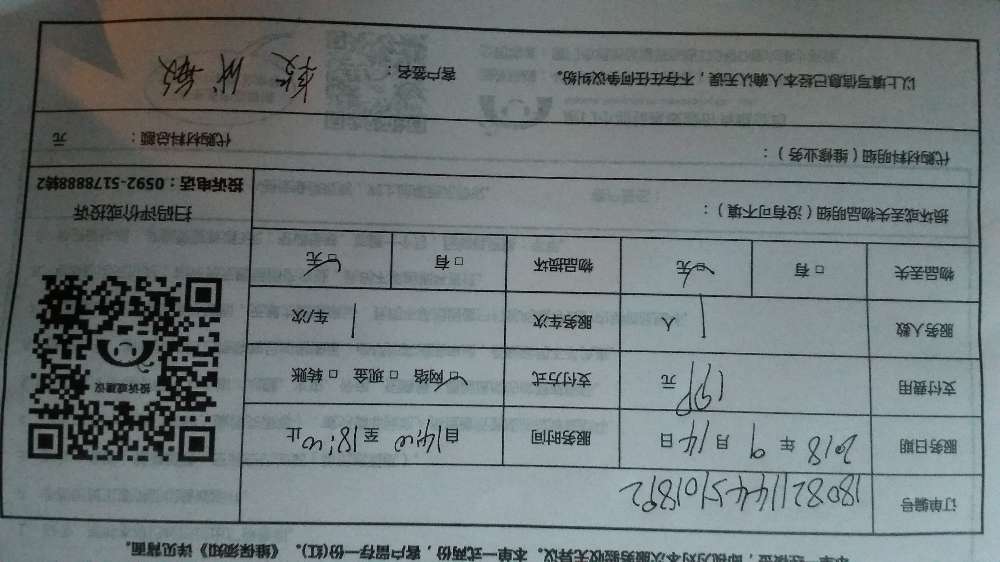 即视为对本次服务验收无异议。本单一式两份，客户留存一份(红)。《维保须知》详见背面。
订单编号 1808211445101892
服务日期 2018 年 9 月 14 日 服务时间 自14:00 至 18:00 止
支付费用 198 元 支付方式 □网络 □现金 □转账
服务人数 1 人 服务车次 1 车/次
物品丢失 □有 □无 物品损坏 □有 □无
投诉或建议
损坏或丢失物品明细（没有可不填）：
扫码评价或投诉
投诉电话：0592-5178888转2
代购材料明细（维修业务）： 代购材料总额： 元
以上填写信息已经本人确认无误，不存在任何争议纠纷。 客户签名：